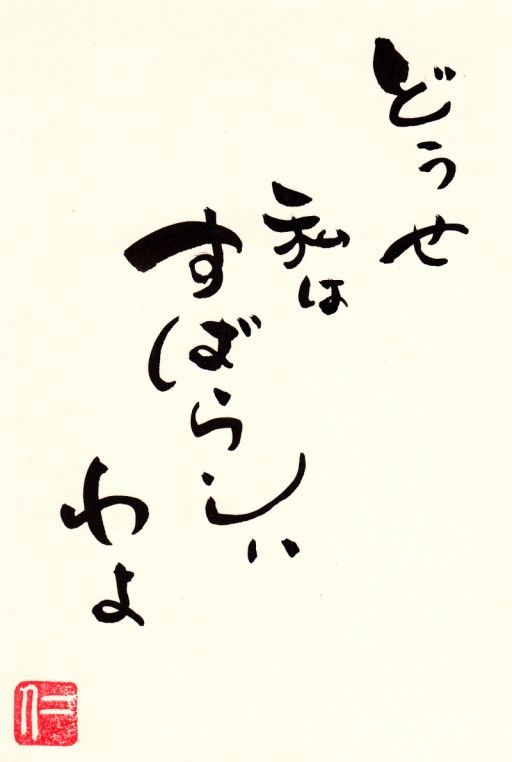 どうせ
私は
すばらしい
わよ
仁